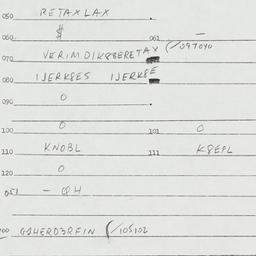 050 RETAXLAX
060 $ 061 —
070 VERIMDIK8BERETAX (/097040
080 IJERK8ES IJERK8E
090 0
100 0 101 0
110 KNOBL 111 K8EPL
120 0
051 — QH
700 G1HERD3REIN (/105102